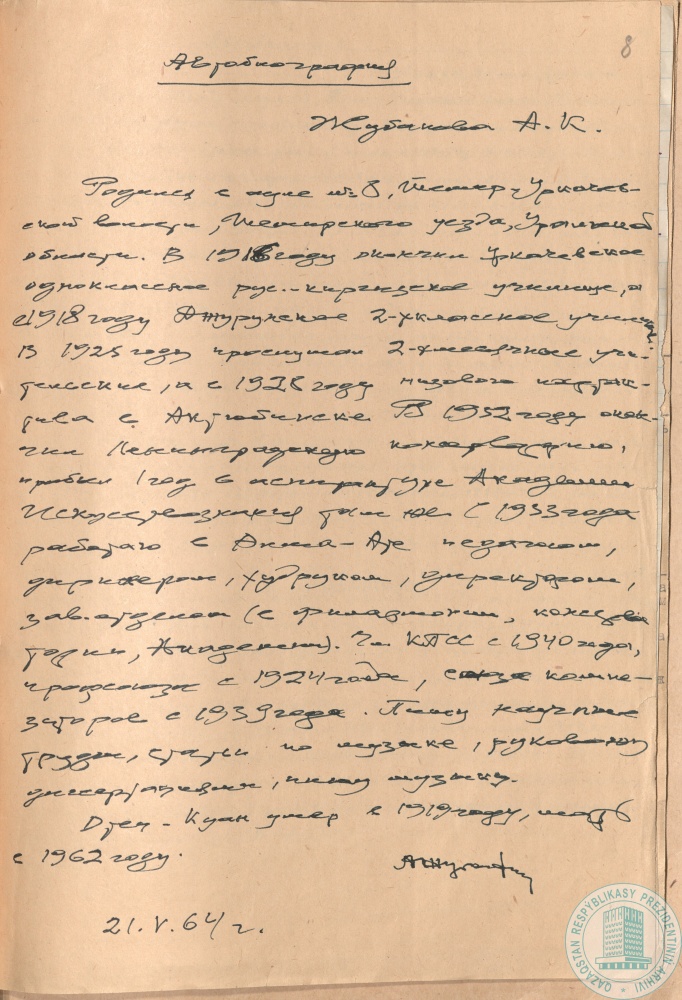 8
Автобиография
Жубанова А. К.
Родился в ауле № 8, Темир-Уркачев-
ской волости, Темирского уезда, Уральской
области. В 1916 году окончил Уркачевское
одноклассное рус.-киргизское училище, а
в 1918 году Джурунское 2-хклассное училище.
В 1925 году прослушал 2-хмесячные учи-
тельские, а в 1928 году низового кооператива
в Актюбинске. В 1932 году окон-
чил Ленинградскую консерваторию,
пробыл 1 год в аспирантуре Академии
Искусствознания там же. С 1933 года
работаю в Алма-Ате педагогом,
дирижером, худруком, директором,
зав.отделом (в филармонии, консерва
тории, Академии). Чл. КПСС с 1940 года,
профсоюза с 1924 года, союза компо-
зиторов с 1939 года. Пишу научные
труды, статьи по музыке, руковожу
диссертациями, пишу музыку.
Отец - Куан умер в 1919 году, мать
в 1962 году.
21.V.64 г.
QAZAQSTAN RESPÝBLIKASY PREZIDENTINIŃ ARHIVI